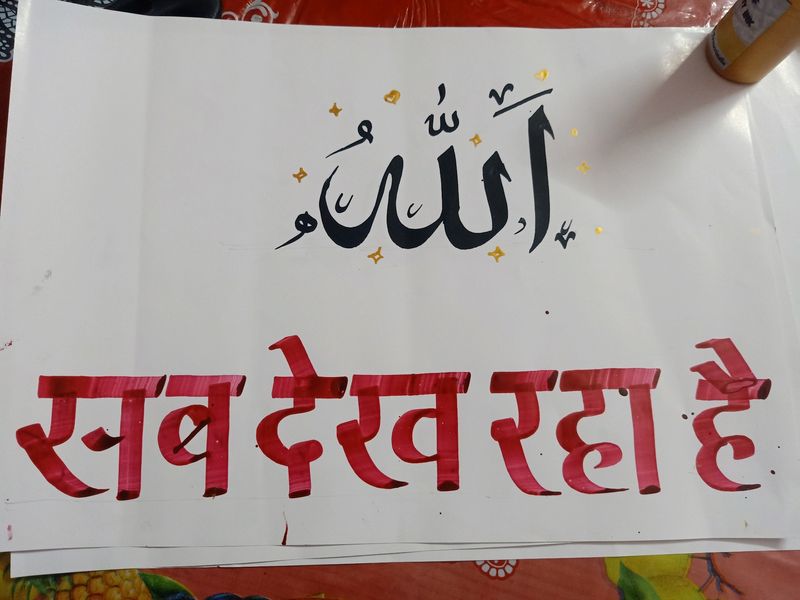 اَللّٰهُ
सब देख रहा है